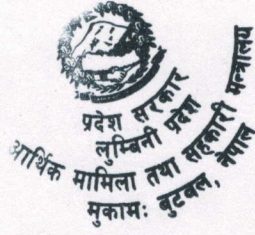 प्रदेश सरकार
लुम्बिनी प्रदेश
आर्थिक मामिला तथा सहकारी मन्त्रालय
मुकामः बुटवल, नेपाल